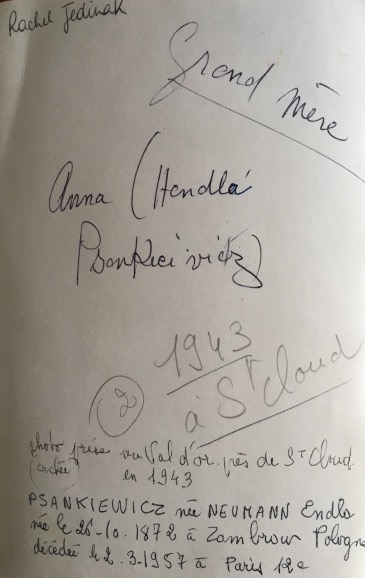 Rachel Jedinak
Grand Mère
Anna (Hendla
Psankieivietz)
1943
à St Cloud
2
photo prise au Val d'or près de St Cloud
(cachée) en 1943
PSANKIEWICZ née NEUMANN Endla
née le 26-10. 1872 à Zambrow Pologne
décédée le 2.3-1957 à Paris 12e